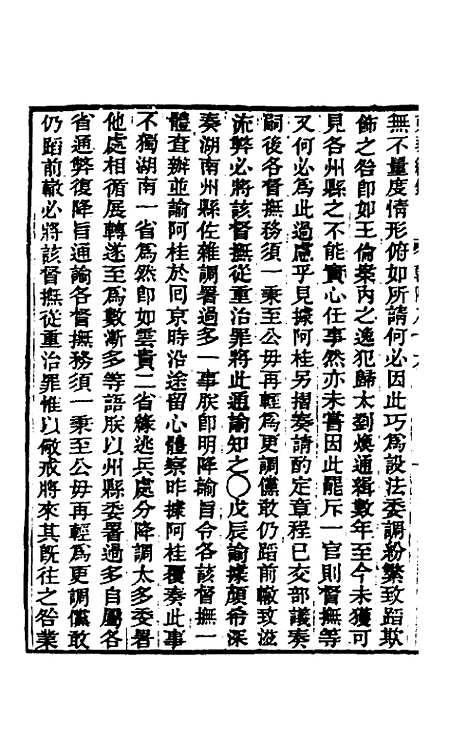 無不量度情形俯如所請何必因此巧為設法委調紛繁致蹈欺
飾之咎卽如王倫案內之逸犯歸太劉煥通緝數年至今未獲可
見各州縣之不能實心任事然亦未嘗因此罷斥一官則督撫等
又何必為此過慮乎見據阿桂另摺奏請酌定章程已交部議奏
嗣後各督撫務須一秉至公毋再輕為更調儻敢仍蹈前轍致滋
流弊必將該督撫從重治罪將此通諭知之〇戊辰諭據顏希深
奏湖南州縣佐雜調署過多一事朕卽明降諭旨令各該督撫一
體查辦並諭阿桂於回京時沿途留心體察昨據阿桂覆奏此事
不獨湖南一省為然卽如雲貴二省緣逃兵處分降調太多委署
他處相循展轉遂至為數漸多等語朕以州縣委署過多自屬各
省通弊復降旨通諭各督撫務須一秉至公毋再輕為更調儻敢
仍蹈前轍必將該督撫從重治罪惟以儆戒將來其旣往之咎業